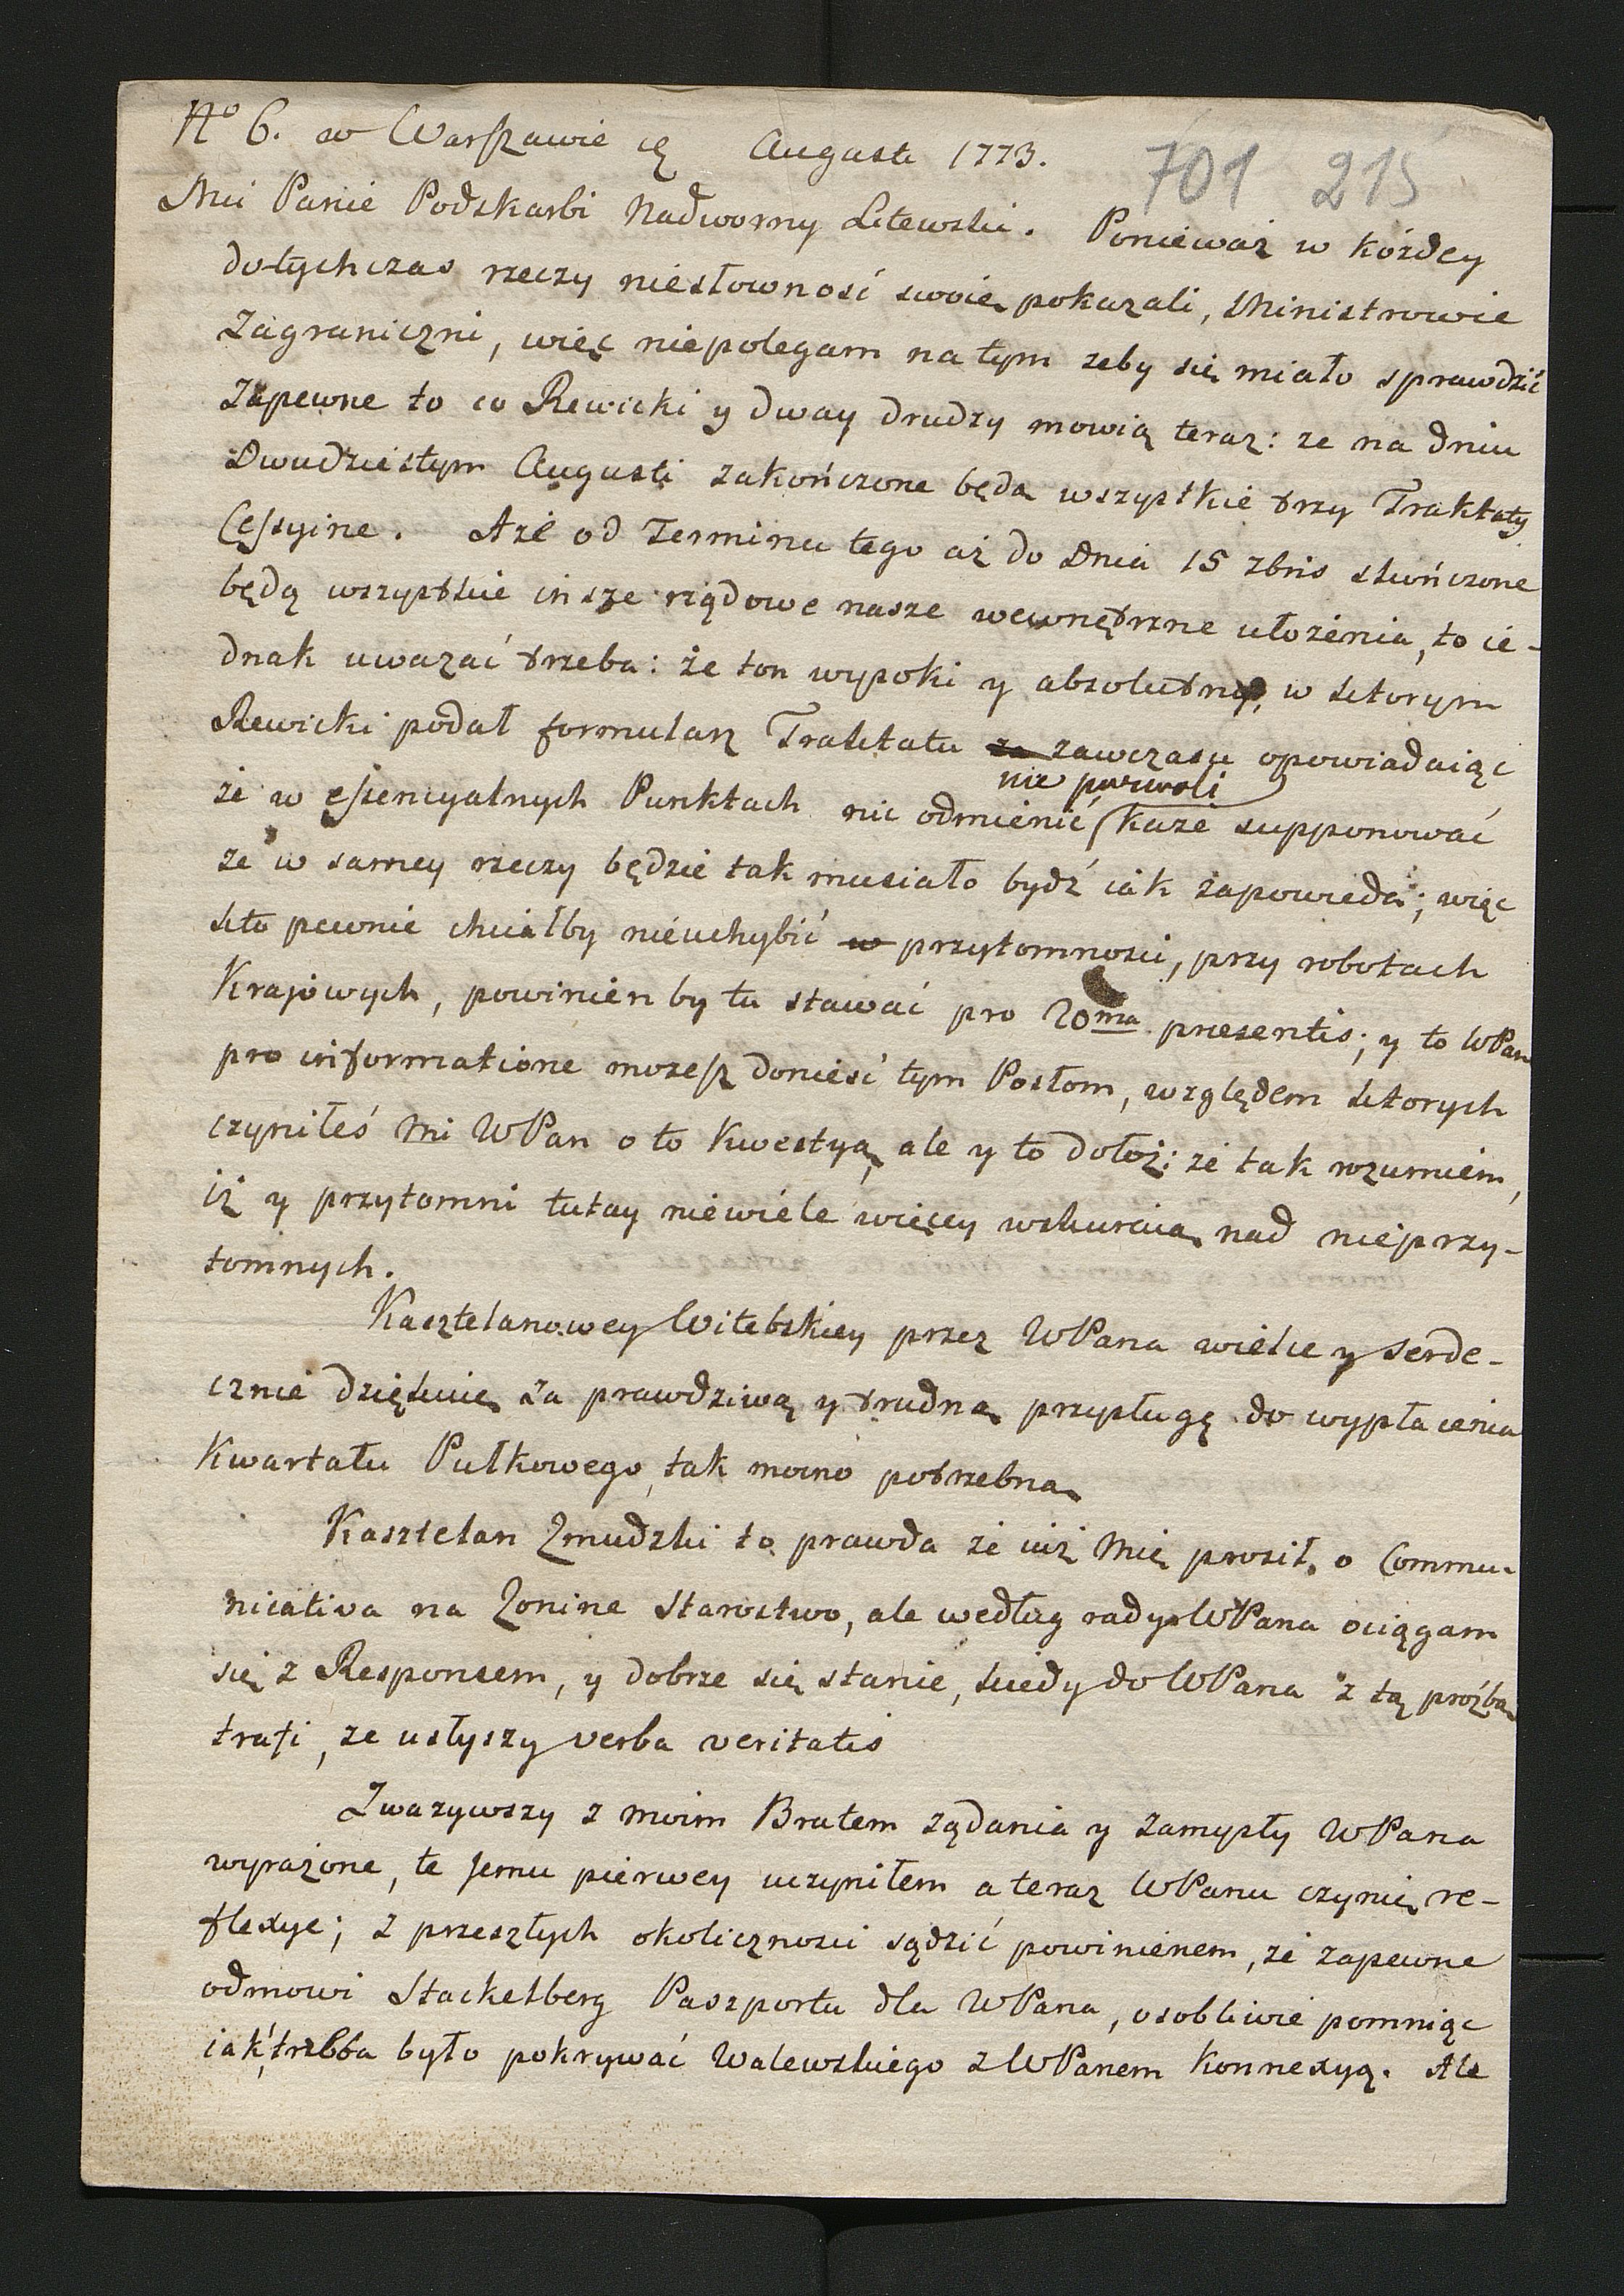 No 6. w Warszawie ię Augusti 1773.
701 215
Mci Panie Podskarbi Nadworny Litewski. Ponieważ w kożdey
dotychczas rzeczy niesłowność swoię pokazali, Ministrowie
Zagraniczni, więc niepolegam na tym zeby się miało sprawdzić
Zapewne to co Rewicki y dway drudzy mowią teraz: ze na dniu
Dwudziestym Augusti zakończone będą wszystkie trzy Traktaty
Cessyine. A że od Terminu tego aż do Dnia 15 zbris skończone
będą wszystkie insze rządowe nasze wewnętrzne ułożenia, to ie-
dnak uwazać trzeba: że ton wysoki y absolutny, w ktorym
Rewicki podał formularz Traktatu za zawczasu opowiadaiąc
nie pozwoli
że w essencyalnych Punktach nic odmienić kaze supponować
ze w samey rzeczy będzie tak musiało bydź iak zapowieda; więc
kto pewnie chciałby nieuchybić w przytomnosci, przy robotach
Krajowych, powinien by tu stawać pro 20ma presentis; y to WPan
pro informatione mozesz donieść tym Posłom, względem ktorych
czyniłeś mi WPan o to kwestyą, ale y to dołoż: ze tak rozumiem,
iż y przytomni tutay niewiele więcey wskuraią nad nieprzy-
tomnych.
Kasztelanowey Witebskiey przez WPana wielce y serde-
cznie dziękuię za prawdziwą y trudną przysługę do wypłacenia
Kwartału Pułkowego, tak mocno potrzebną
Kasztelan Zmudzki to prawda że iuż mię prosił, o Commu-
nicativa na Zonine Starostwo, ale według rady WPana ociągam
się z Responsem, y dobrze się stanie, kiedy do WPana z tą proźbą
trafi, ze usłyszy verba veritatis
Zwazywszy z moim Bratem ządania y zamysły WPana
wyrażone, te Jemu pierwey uczyniłem a teraz WPanu czynię re-
flexye; z przeszłych okolicznosci sądzić powinienem, że zapewne
odmowi Stackelberg Paszportu dla WPana, osobliwie pomniąc
iak trzeba było pokrywać Walewskiego z WPanem konnexyą. Ale